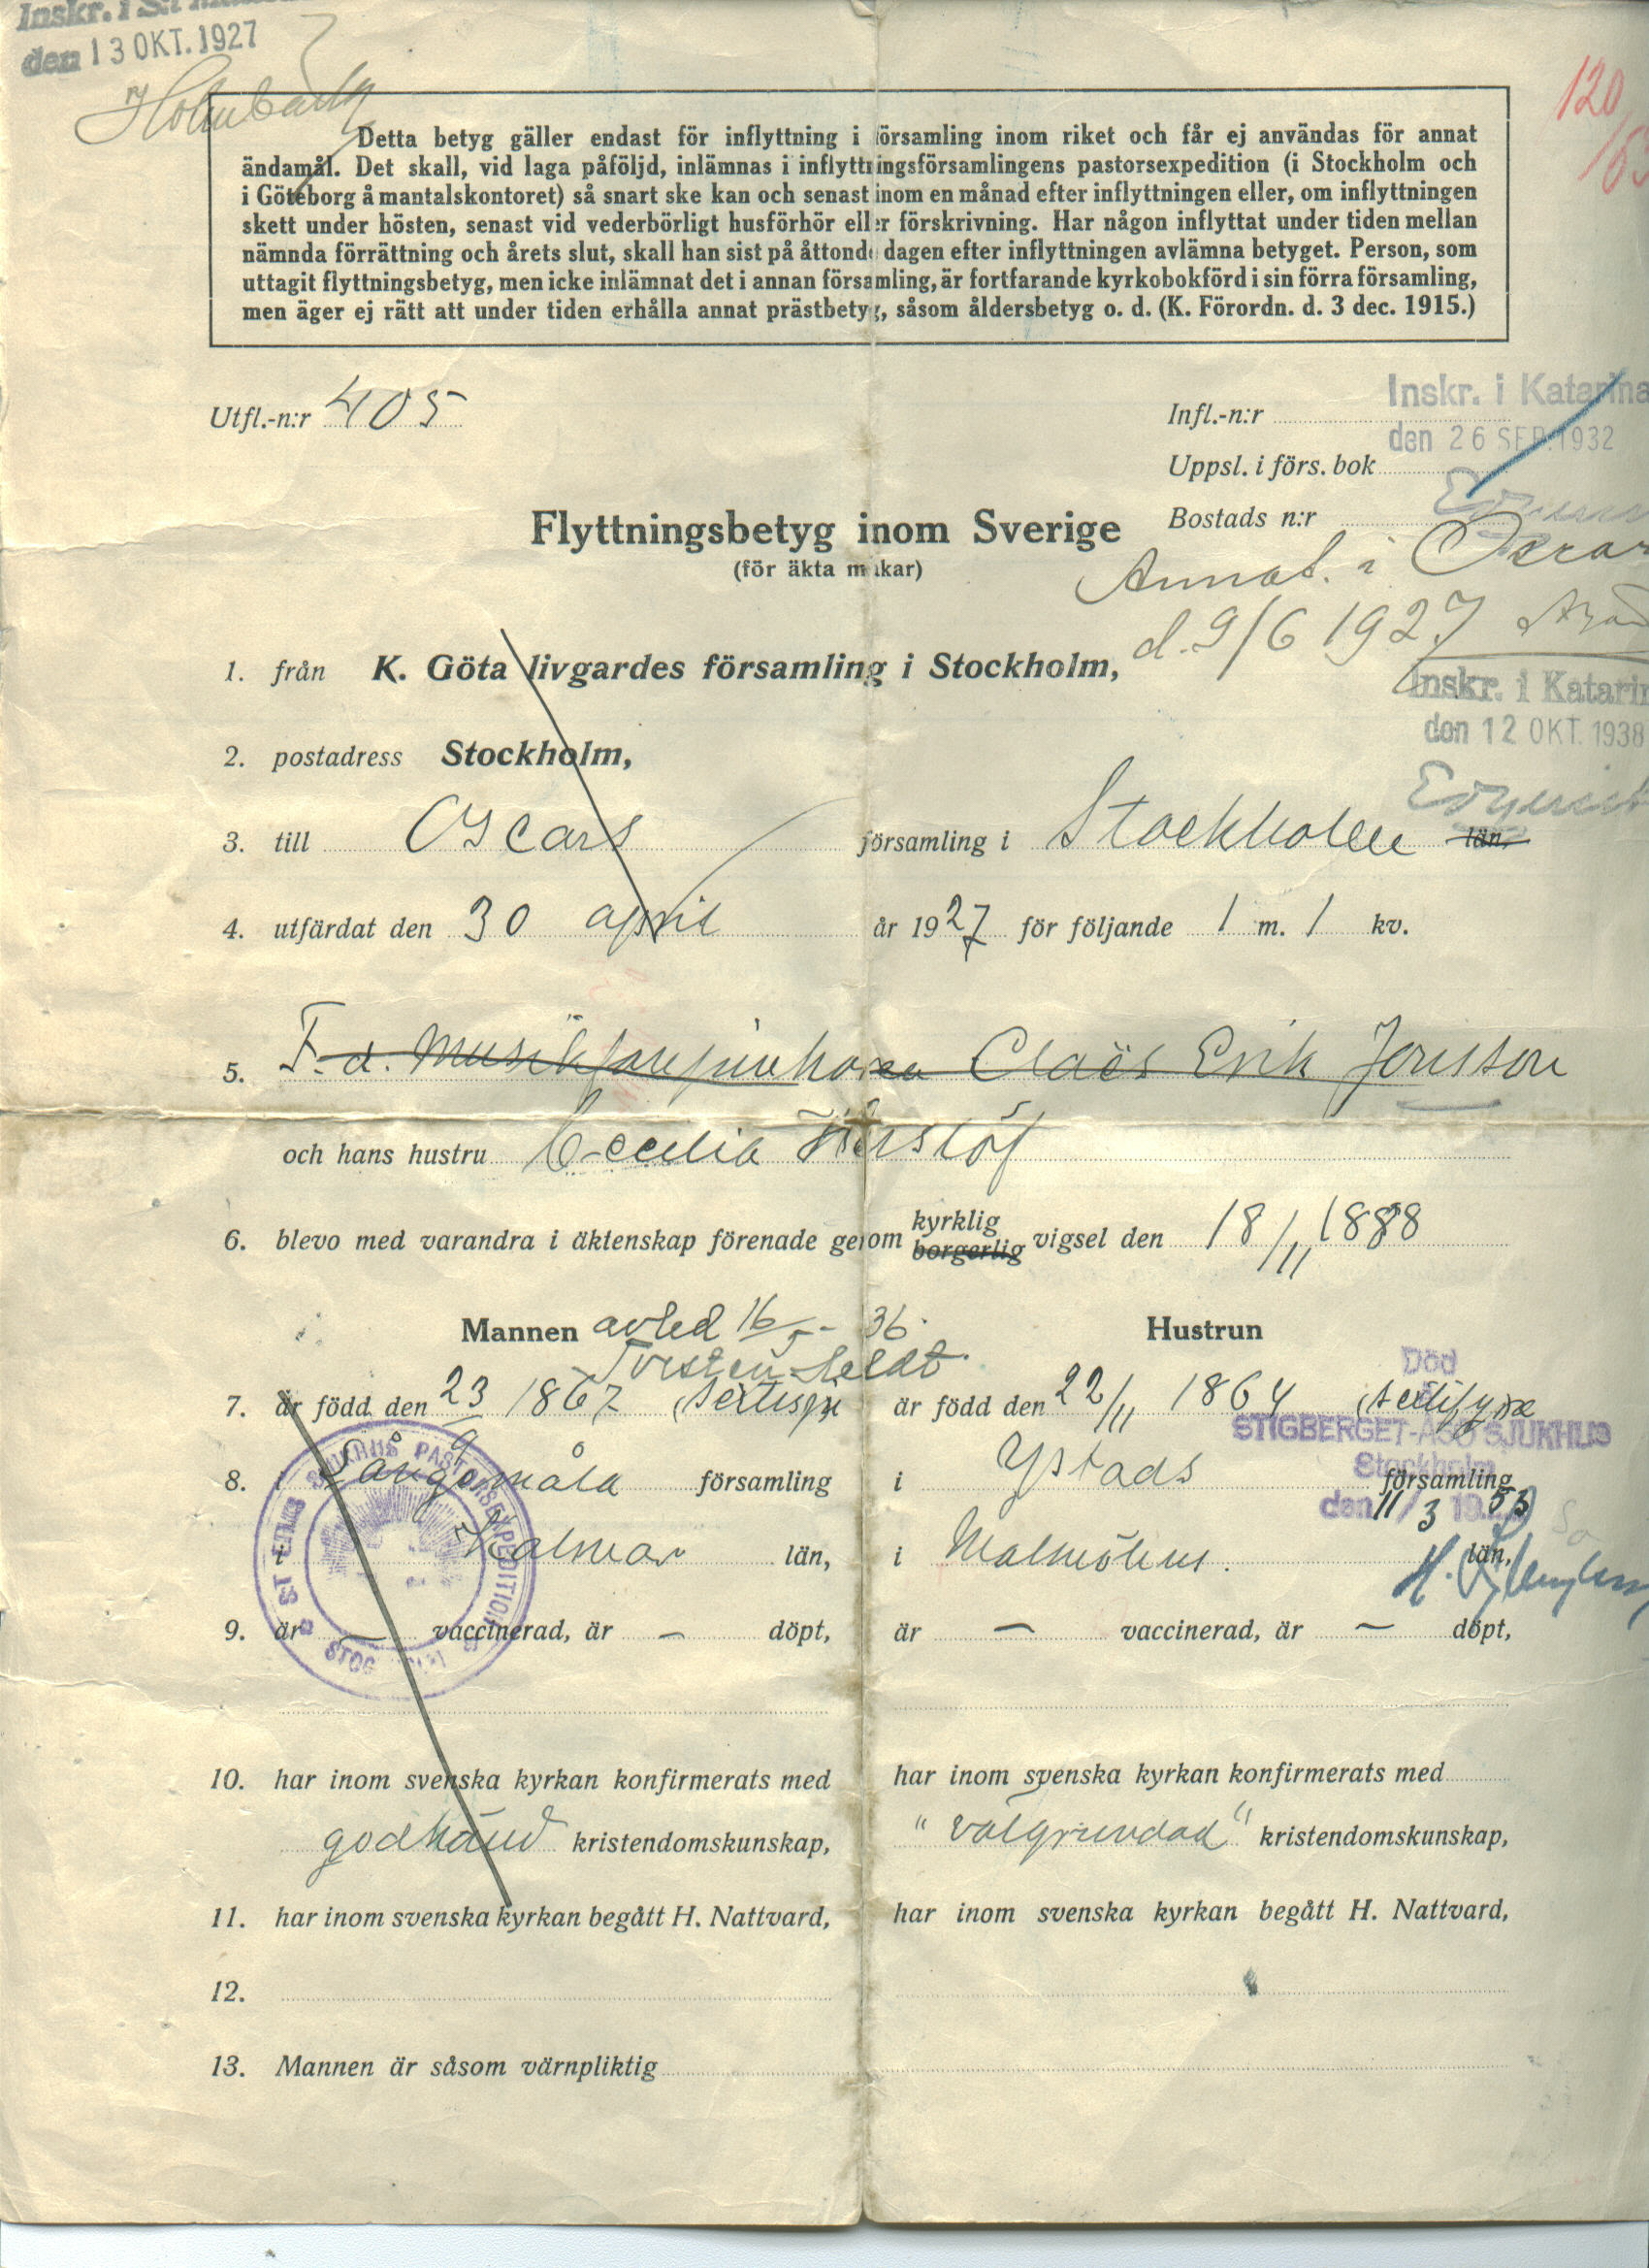 Inskr. i S:t
den 13 OKT. 1927
Holmbärg
120
Detta betyg gäller endast för inflyttning i församling inom riket och får ej användas för annat
ändamål. Det skall, vid laga påföljd, inlämnas i inflyttningsförsamlingens pastorsexpedition (i Stockholm och
i Göteborg å mantalskontoret) så snart ske kan och senast inom en månad efter inflyttningen eller, om inflyttningen
skett under hösten, senast vid vederbörligt husförhör eller förskrivning. Har någon inflyttat under tiden mellan
nämnda förrättning och årets slut, skall han sist på åttonde dagen efter inflyttningen avlämna betyget. Person, som
uttagit flyttningsbetyg, men icke inlämnat det i annan församling, är fortfarande kyrkobokförd i sin förra församling,
men äger ej rätt att under tiden erhålla annat prästbetyg, såsom åldersbetyg o. d. (K. Förordn. d. 3 dec. 1915.)
Utfl.-n:r 405
Infl.-n:r
Inskr. i Katarina
den 26 SEP. 1932
Uppsl. i förs. bok
Bostads n:r
Flyttningsbetyg inom Sverige
(för äkta makar)
Annot. i Oscar
d. 9/6 1927
1. från K. Göta livgardes församling i Stockholm,
Inskr. i Katarin
den 12 OKT. 1938
2. postadress Stockholm,
3. till Oscars församling i Stockholm län,
4. utfärdat den 30 april år 1927 för följande 1 m. 1 kv.
5. F.d. Musikfanjunkaren Claës Erik Jonsson
och hans hustru Cecilia
6. blevo med varandra i äktenskap förenade genom kyrklig borgerlig vigsel den 18/11 1888
Mannen avled 16/5 - 36.
Hustrun
Torsten
Död
7. är född den 23/9 1867 är född den 22/11 1864
STIGBERGET-ÅSÖ SJUKHUS
Stockholm
den 11/3 1953
8. i Långemåla församling i Ystads församling
i Kalmar län, i Malmöhus. län,
ST ERIKS SJUKHUS PASTORSEXPEDITION
9. är — vaccinerad, är — döpt, är — vaccinerad, är — döpt,
10. har inom svenska kyrkan konfirmerats med har inom svenska kyrkan konfirmerats med
godkänd kristendomskunskap, "välgrundad" kristendomskunskap,
11. har inom svenska kyrkan begått H. Nattvard, har inom svenska kyrkan begått H. Nattvard,
12.
13. Mannen är såsom värnpliktig